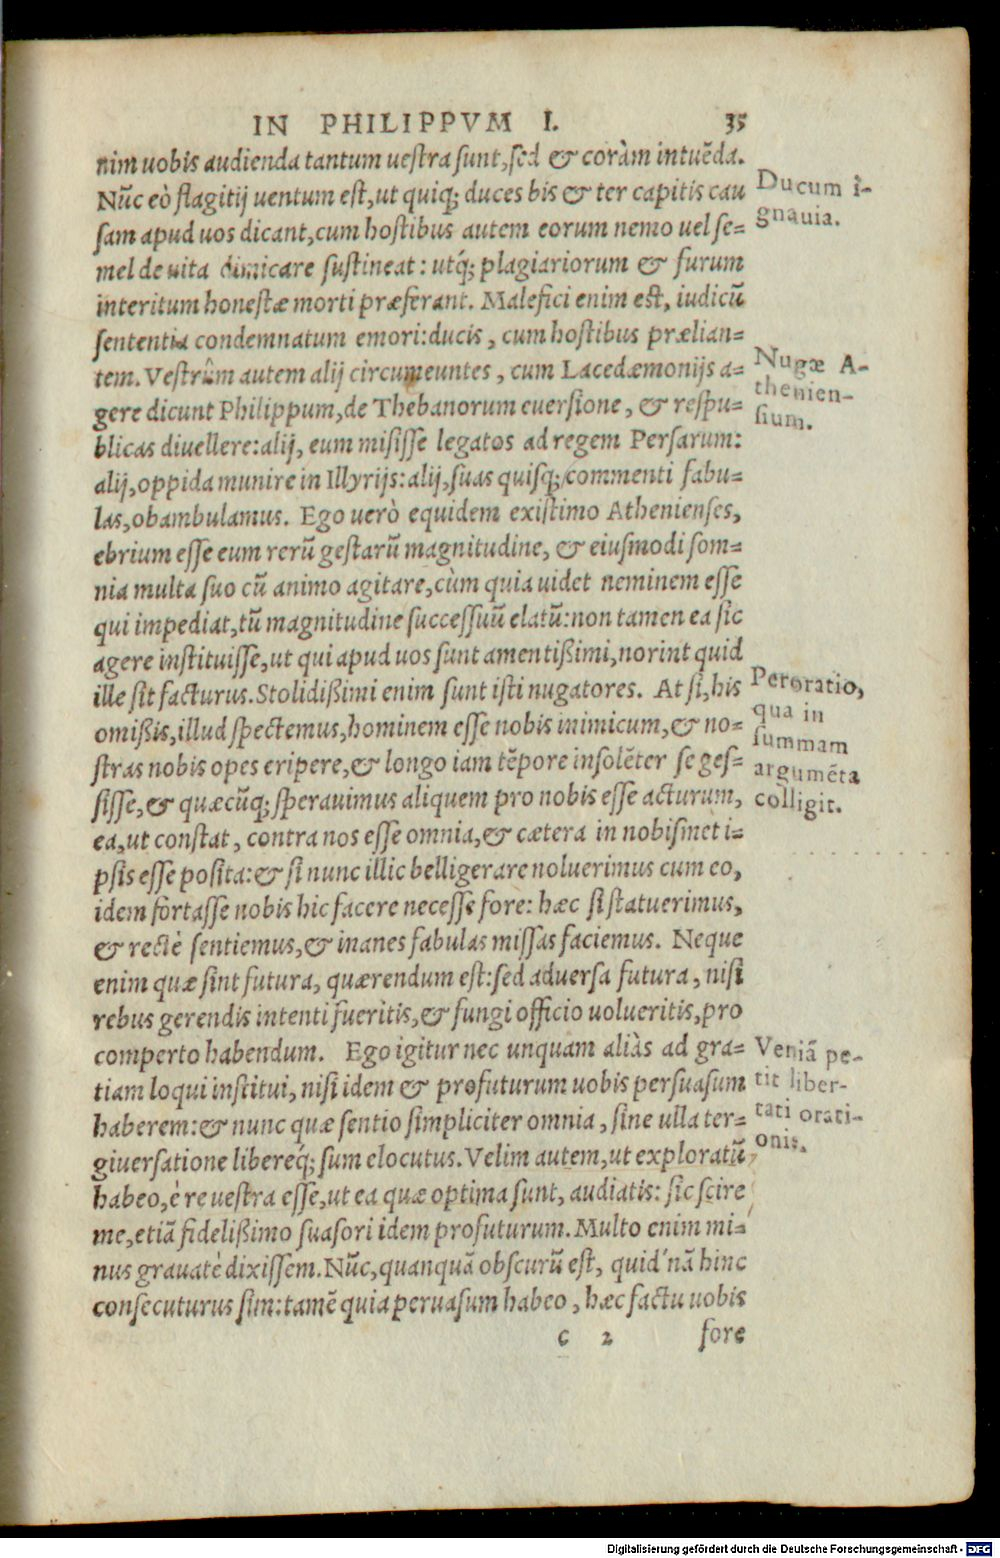 IN PHILIPPVM I. 35
nim uobis audienda tantum uestra sunt, sed & coràm intuẽda.
Nũc eò flagitij uentum est, ut quiq; duces bis & ter capitis cau
sam apud uos dicant, cum hostibus autem eorum nemo uel se=
mel de uita dimicare sustineat: utq́; plagiariorum & furum
interitum honestæ morti præferant. Malefici enim est, iudicũ
sententia condemnatum emori: ducis, cum hostibus prælian=
tem. Vestrûm autem alij circumeuntes, cum Lacedæmonijs a=
gere dicunt Philippum, de Thebanorum euersione, & respu=
blicas diuellere: alij, eum misisse legatos ad regem Persarum:
alij, oppida munire in Illyrijs: alij, suas quisq; commenti fabu=
las, obambulamus. Ego uerò equidem existimo Athenienses,
ebrium esse eum rerũ gestarũ magnitudine, & eiusmodi som=
nia multa suo cũ animo agitare, cùm quia uidet neminem esse
qui impediat, tũ magnitudine successuũ elatũ: non tamen ea sic
agere instituisse, ut qui apud uos sunt amentißimi, norint quid
ille sit facturus. Stolidißimi enim sunt isti nugatores. At si, his
omißis, illud spectemus, hominem esse nobis inimicum, & no=
stras nobis opes eripere, & longo iam tẽpore insolẽter se ges=
sisse, & quæcũq; sperauimus aliquem pro nobis esse acturum,
ea, ut constat, contra nos esse omnia, & cætera in nobismet i=
psis esse posita: & si nunc illic belligerare noluerimus cum eo,
idem fortasse nobis hic facere necesse fore: hæc si statuerimus,
& rectè sentiemus, & inanes fabulas missas faciemus. Neque
enim quæ sint futura, quærendum est: sed aduersa futura, nisi
rebus gerendis intenti fueritis, & fungi officio uolueritis, pro
comperto habendum. Ego igitur nec unquam aliàs ad gra=
tiam loqui institui, nisi idem & profuturum uobis persuasum
haberem: & nunc quæ sentio simpliciter omnia, sine ulla ter=
giuersatione libereq́; sum elocutus. Velim autem, ut exploratũ
habeo, è re uestra esse, ut ea quæ optima sunt, audiatis: sic scire
me, etiã fidelißimo suasori idem profuturum. Multo enim mi=
nus grauatè dixissem. Nũc, quanquã obscurũ est, quid'nã hinc
consecuturus sim: tamẽ quia peruasum habeo, hæc factu uobis
c 2 fore
Ducum i-
gnauia.
Nugæ A-
thenien-
sium.
Peroratio,
qua in
summam
argumẽta
colligit.
Veniã pe-
tit liber-
tati orati-
onis.
Digitalisierung gefördert durch die Deutsche Forschungsgemeinschaft - DFG